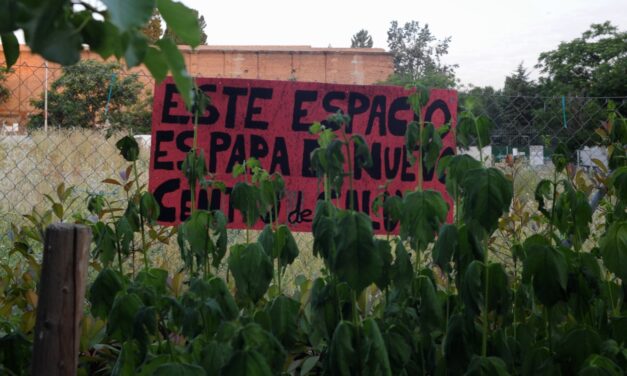 ESTE ESPACIO
ES PARA EL NUEVO
CENTRO de SALUD